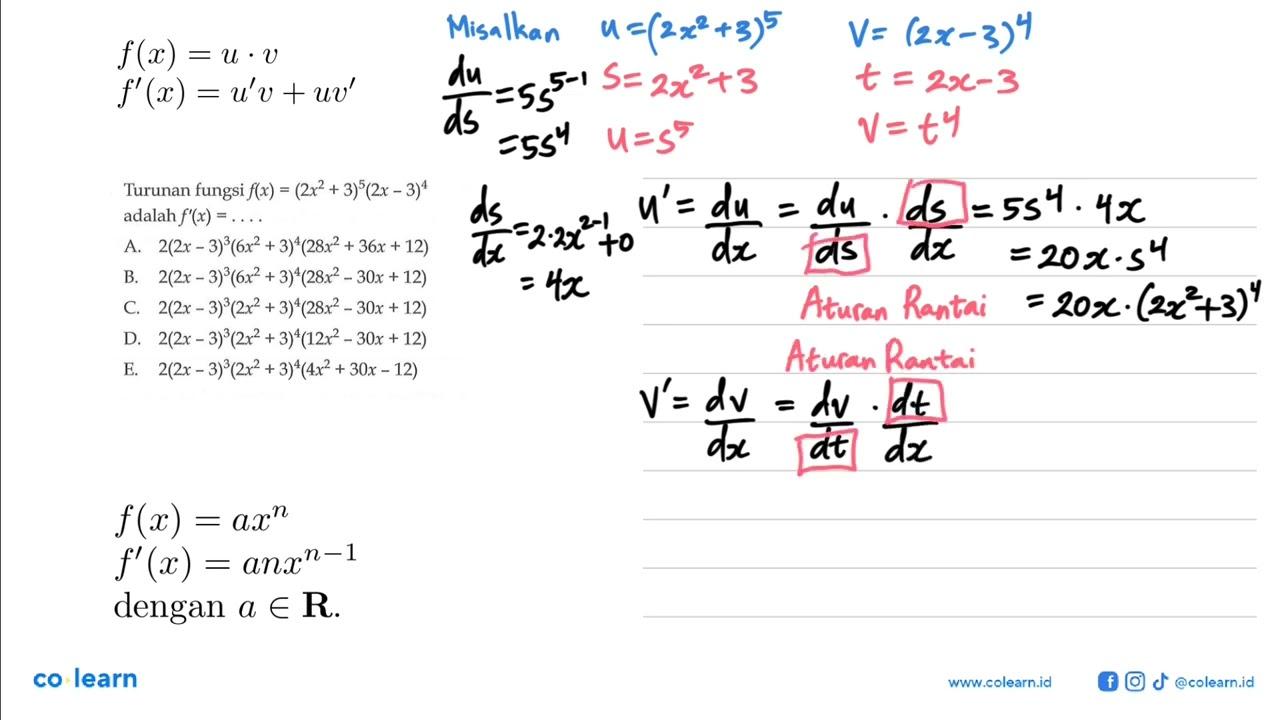 f(x) = u · v
f'(x) = u'v + uv'
Misalkan u = (2x² + 3)⁵ v = (2x - 3)⁴
du/ds = 5s⁵⁻¹ s = 2x² + 3 t = 2x - 3
= 5s⁴ u = s⁵ v = t⁴
Turunan fungsi f(x) = (2x² + 3)⁵(2x – 3)⁴
adalah f'(x) = . . . .
A. 2(2x – 3)³(6x² + 3)⁴(28x² + 36x + 12)
B. 2(2x – 3)³(6x² + 3)⁴(28x² – 30x + 12)
C. 2(2x – 3)³(2x² + 3)⁴(28x² – 30x + 12)
D. 2(2x – 3)³(2x² + 3)⁴(12x² – 30x + 12)
E. 2(2x – 3)³(2x² + 3)⁴(4x² + 30x – 12)
ds/dx = 2·2x²⁻¹ + 0
= 4x
u' = du/dx = du/ds · ds/dx = 5s⁴ · 4x
= 20x · s⁴
Aturan Rantai = 20x · (2x² + 3)⁴
Aturan Rantai
v' = dv/dx = dv/dt · dt/dx
f(x) = axⁿ
f'(x) = anxⁿ⁻¹
dengan a ∈ R.
co·learn
www.colearn.id @colearn.id